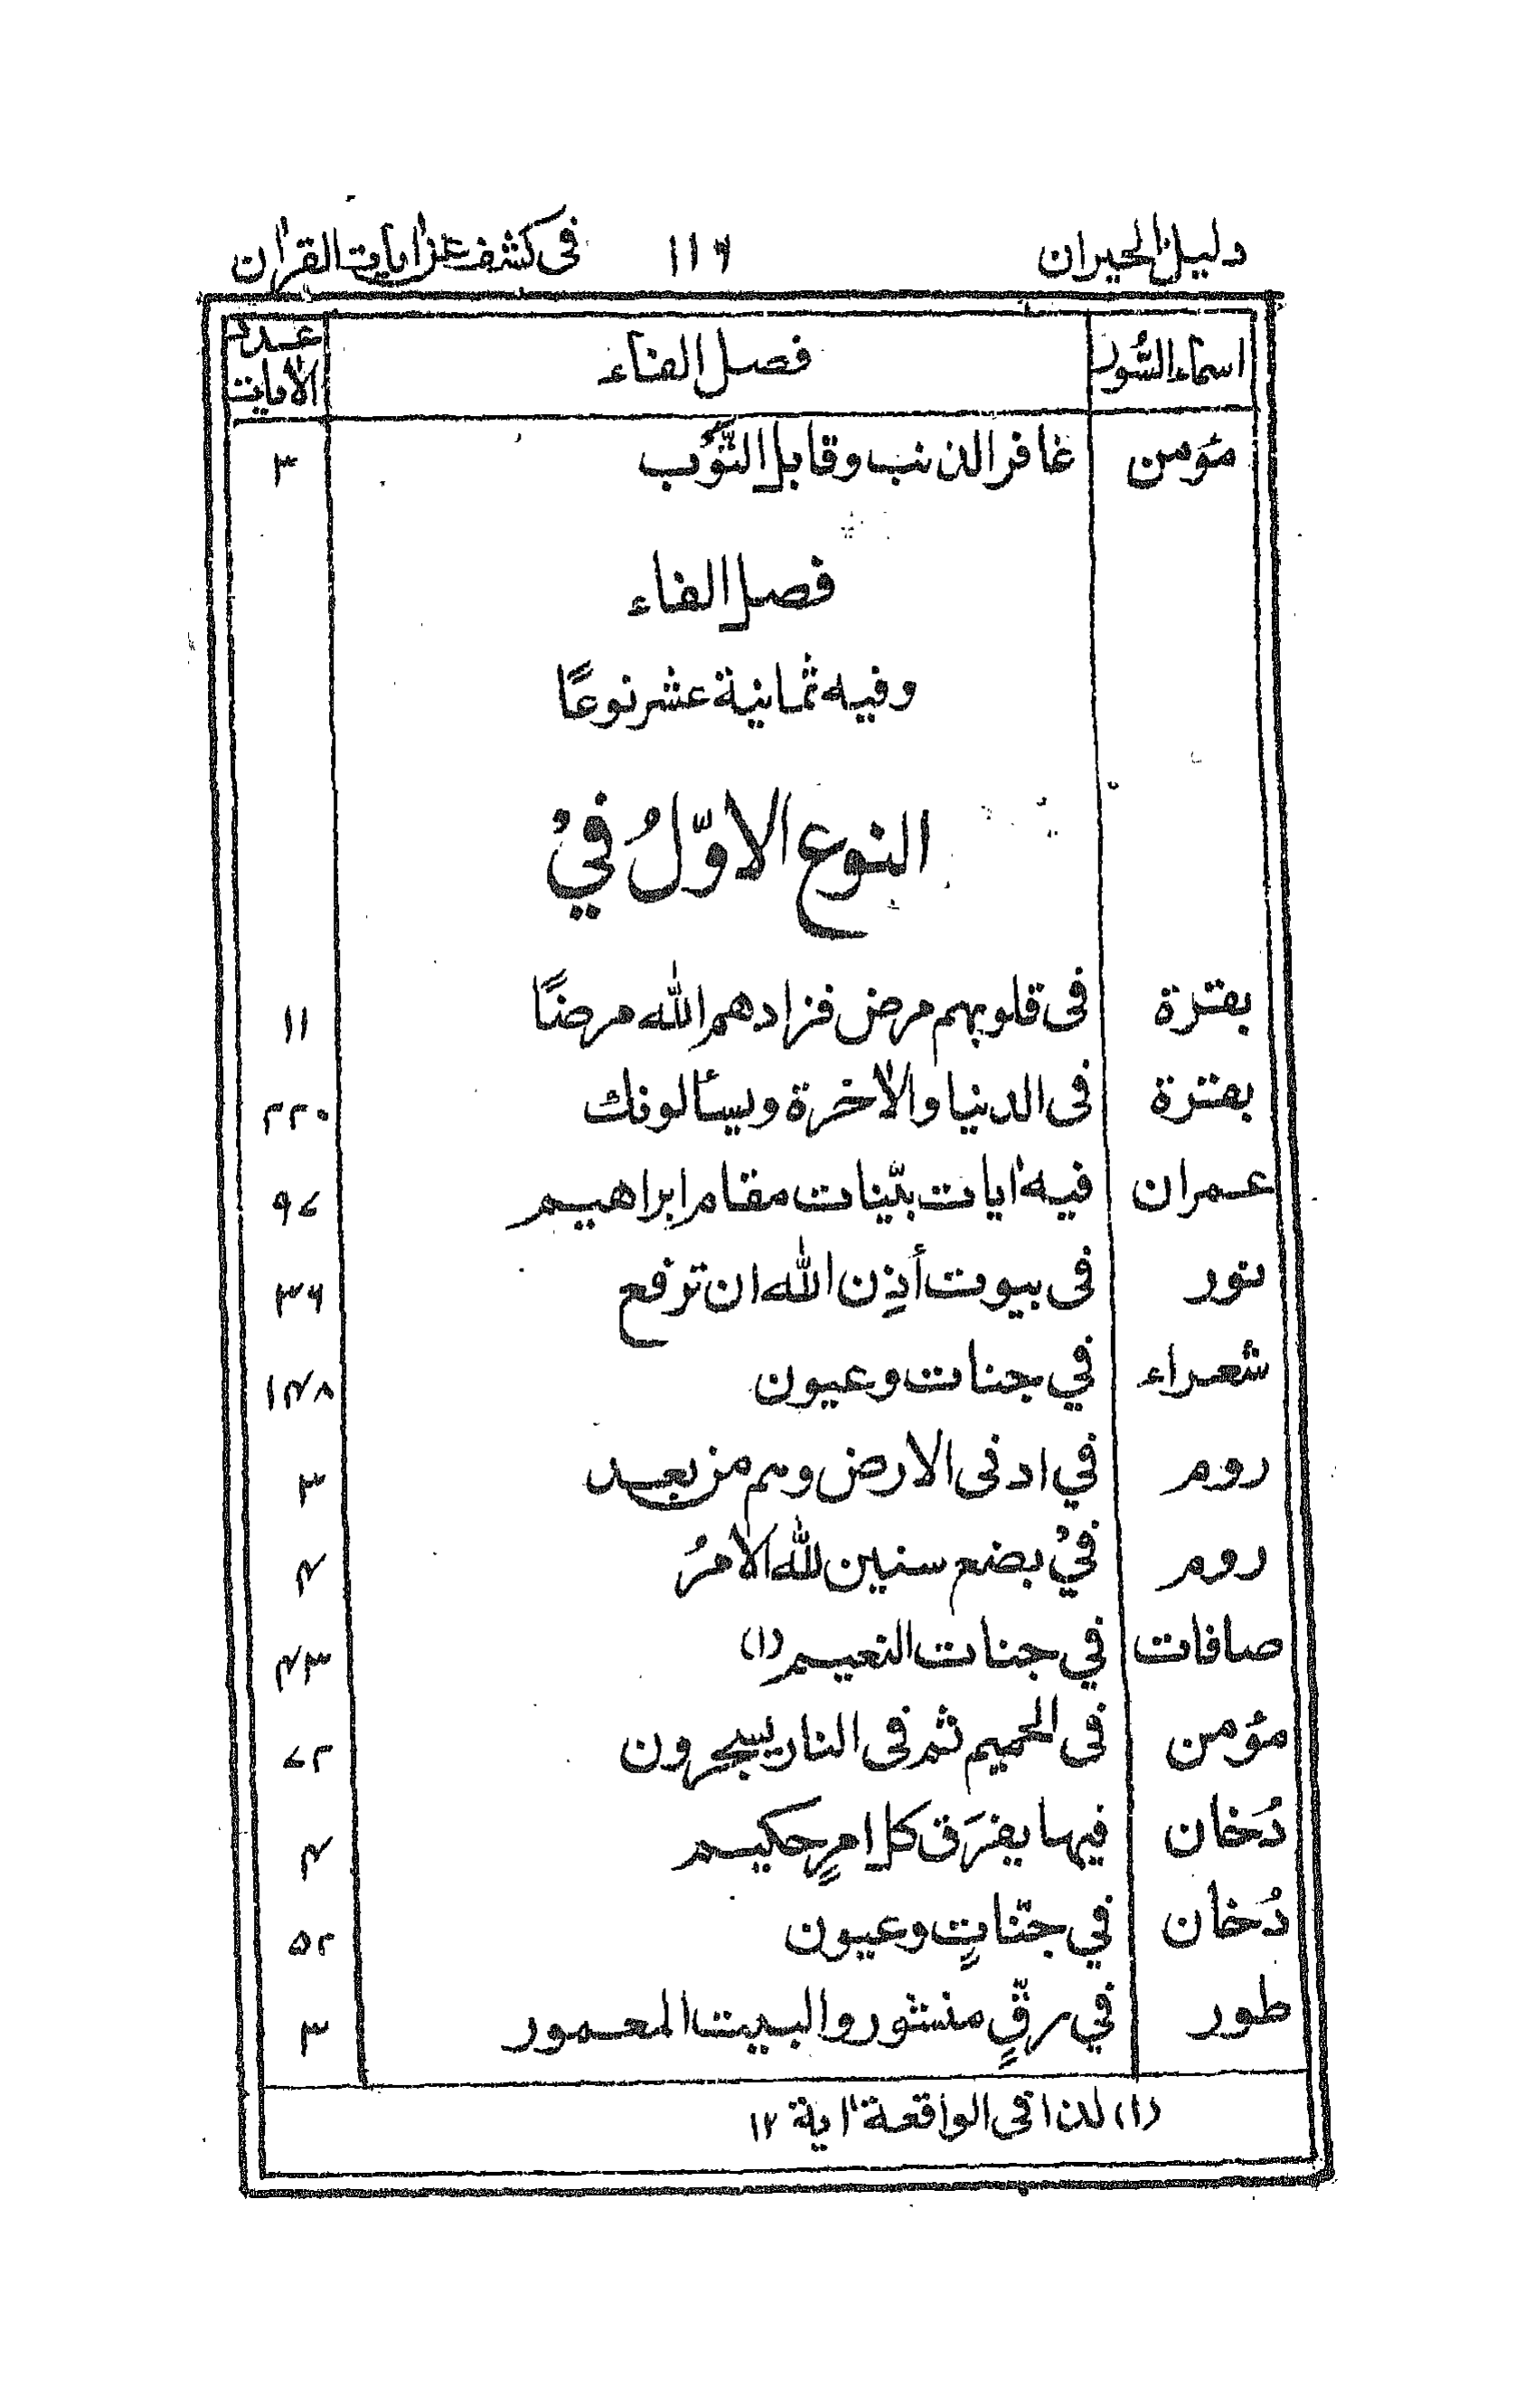 دليل الحيران ١١٦ فى كشف عن اٰيات القراٰن
اسماء السُّور فصل الفاء عدد الاٰيات
مؤمن غافر الذنب وقابل التَّوْب ٣
فصل الفاء
وفيه ثمانية عشر نوعًا
النوع الاوّلُ فيْ
بقرة فى قلوبهم مرض فزادهم الله مرضًا ١١
بقرة فى الدنيا والاٰخرة ويسألونك ٢٢٠
عمران فيه اٰيات بيّنات مقام ابراهيم ٩٧
نور فى بيوت أذِن الله ان ترفع ٣٦
شعراء في جنات وعيون ١٤٨
روم في ادنى الارض وهم من بعد ٣
روم فيْ بضع سنين لله الامرُ ٤
صافات في جنات النعيم (١) ٤٣
مؤمن فى الحميم ثم فى النار يسجرون ٧٢
دُخان فيها يفرَق كل امرٍ حكيم ٤
دُخان في جنّاتٍ وعيون ٥٢
طور في رقٍّ منشور والبيت المعمور ٣
(١) لذا فى الواقعة اٰية ١٢